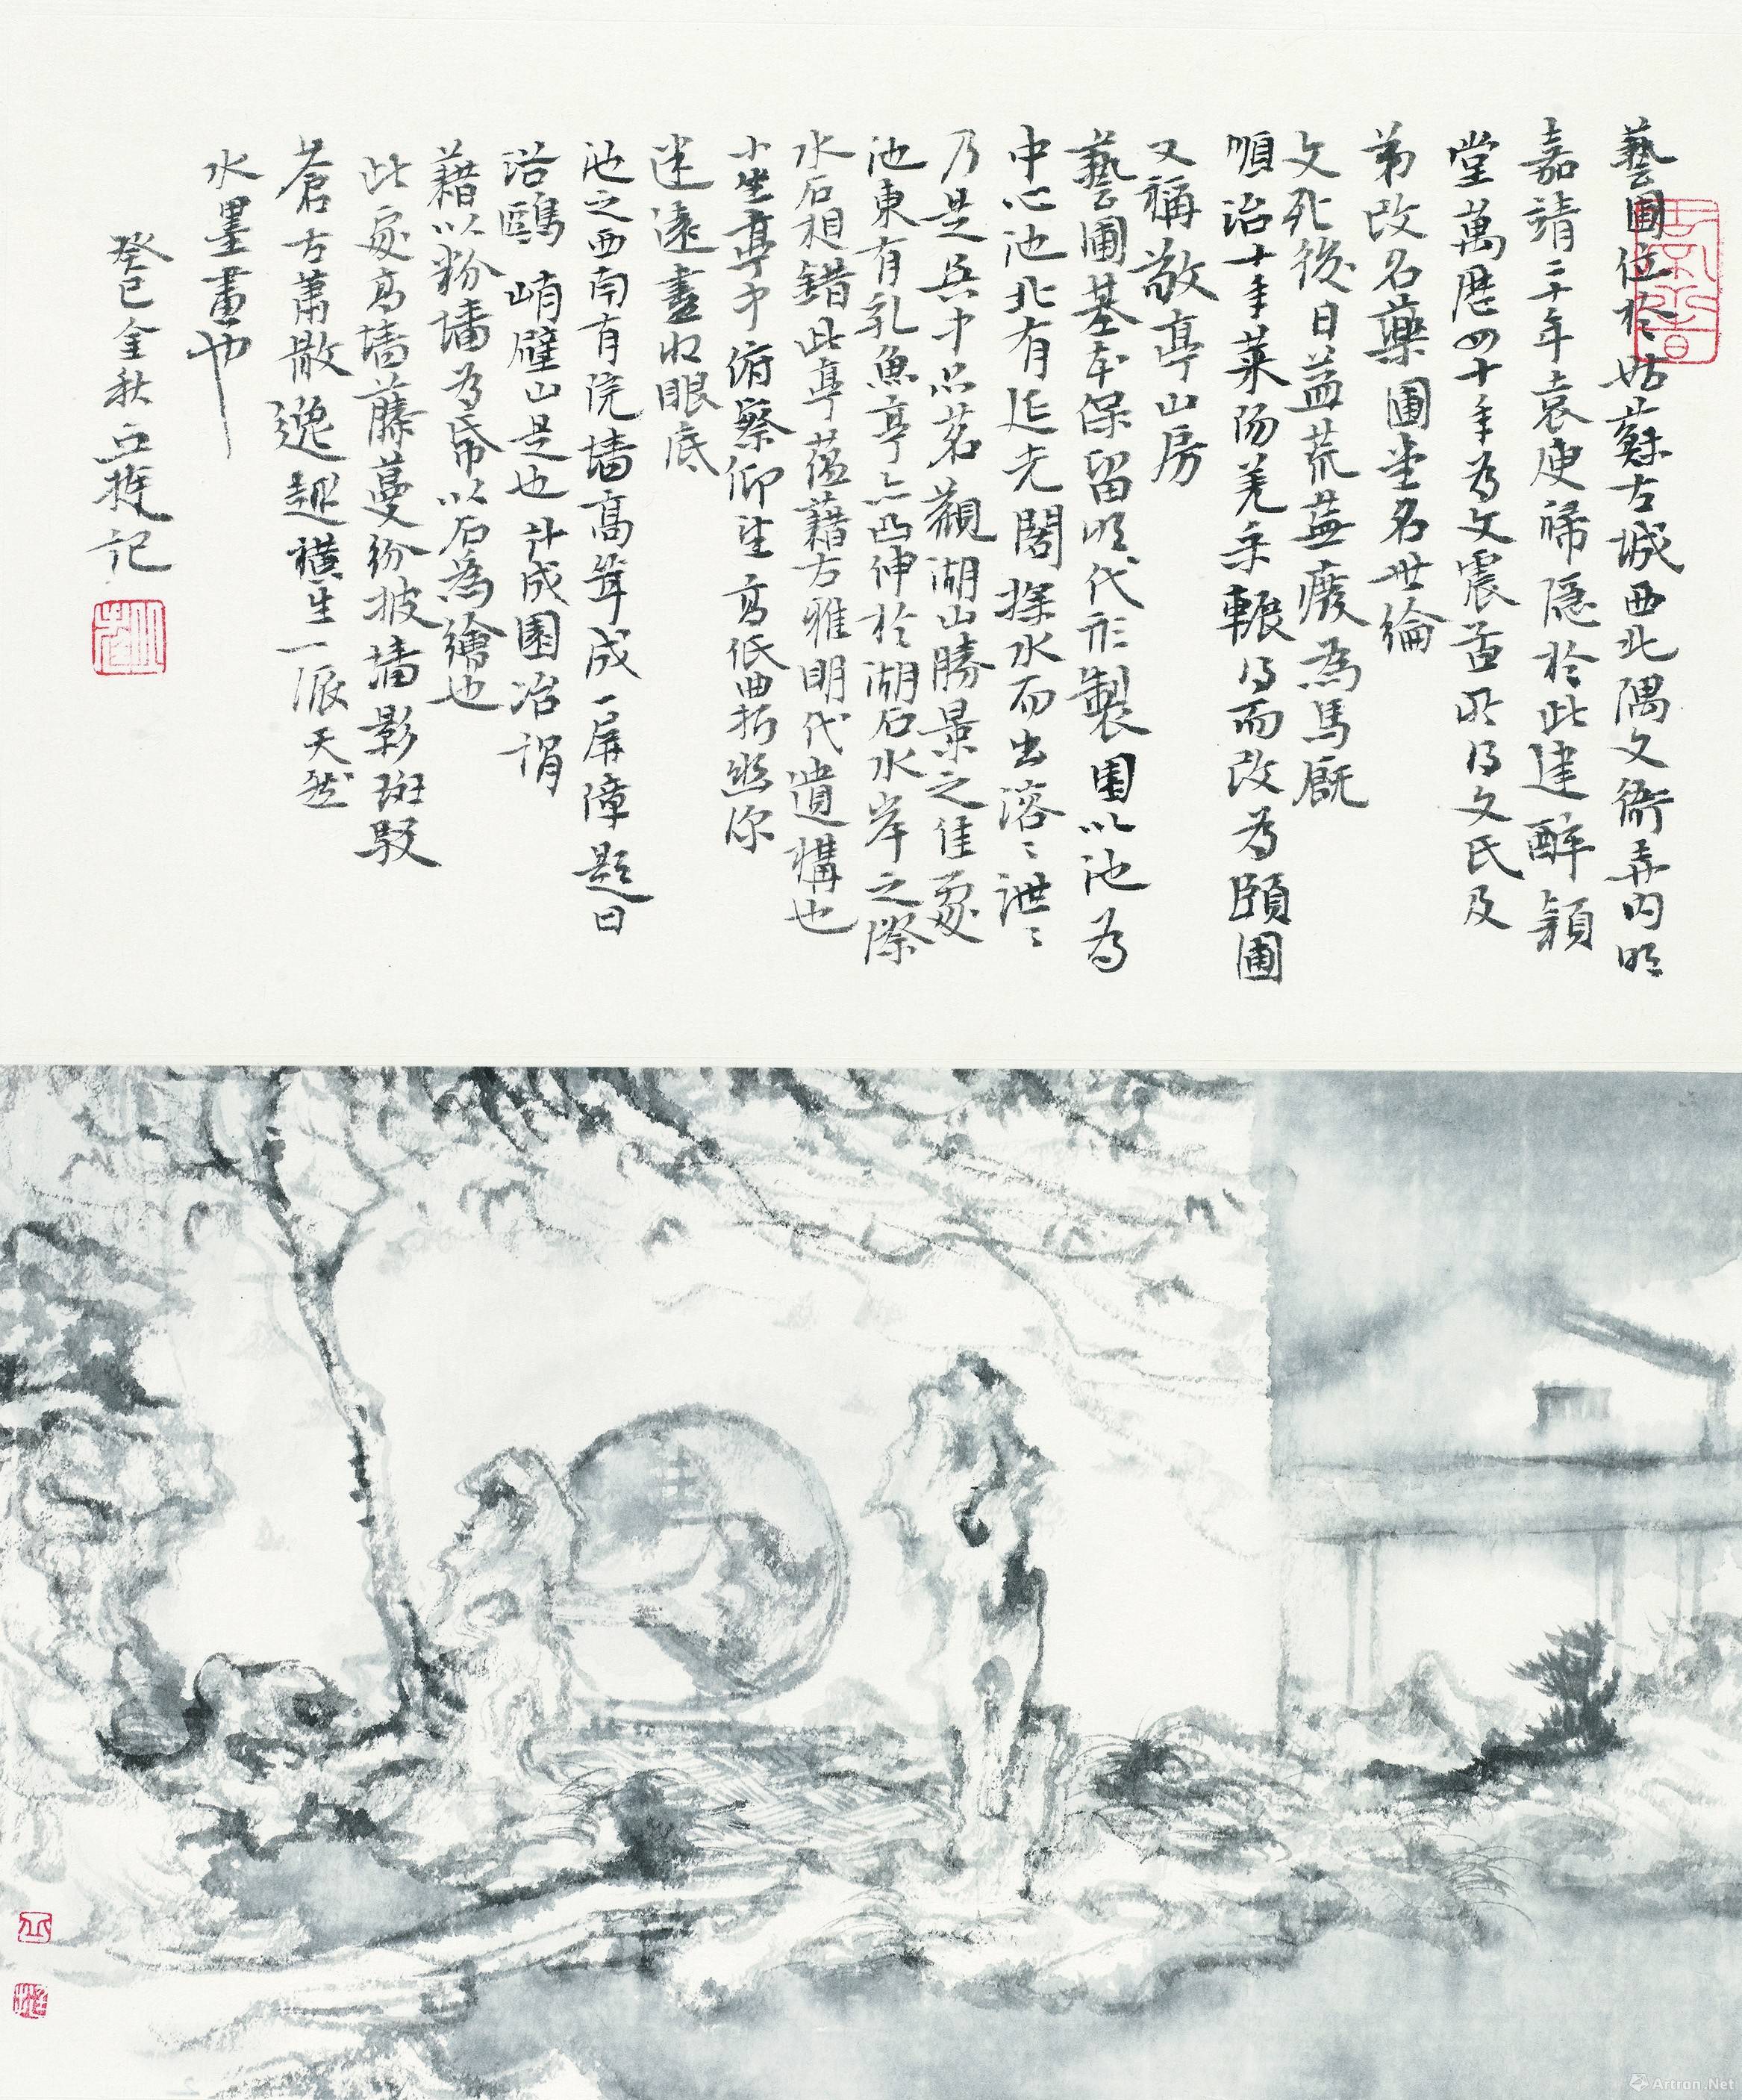 藝圃位於姑蘇古城西北隅文衙弄內明
嘉靖二十年袁庚歸隱於此建醉穎
堂萬曆四十年為文震孟所得文氏及
弟改名藥圃堂名世綸
文死後日益荒蕪廢為馬厩
順治十年萊陽姜采輾得而改為頤圃
又稱敬亭山房
藝圃基本保留明代形製園以池為
中心池北有延光閣探水而出溶〻泄〻
乃是其中品茗觀湖山勝景之佳處
池東有乳魚亭亦凸伸於湖石水岸之際
水石相錯此亭蘊藉古雅明代遺構也
小坐亭中俯察仰望高低曲折幽深
迷遠盡收眼底
池之西南有院墻高聳成一屏障題曰
浴鷗 峭壁山是也計成園冶謂
藉以粉墻為帋以石為繪也
此處高墻藤蔓紛披墻影斑駁
蒼古蕭散逸趣橫生一派天然
水墨畫也
癸巳金秋 記
Artron.Net